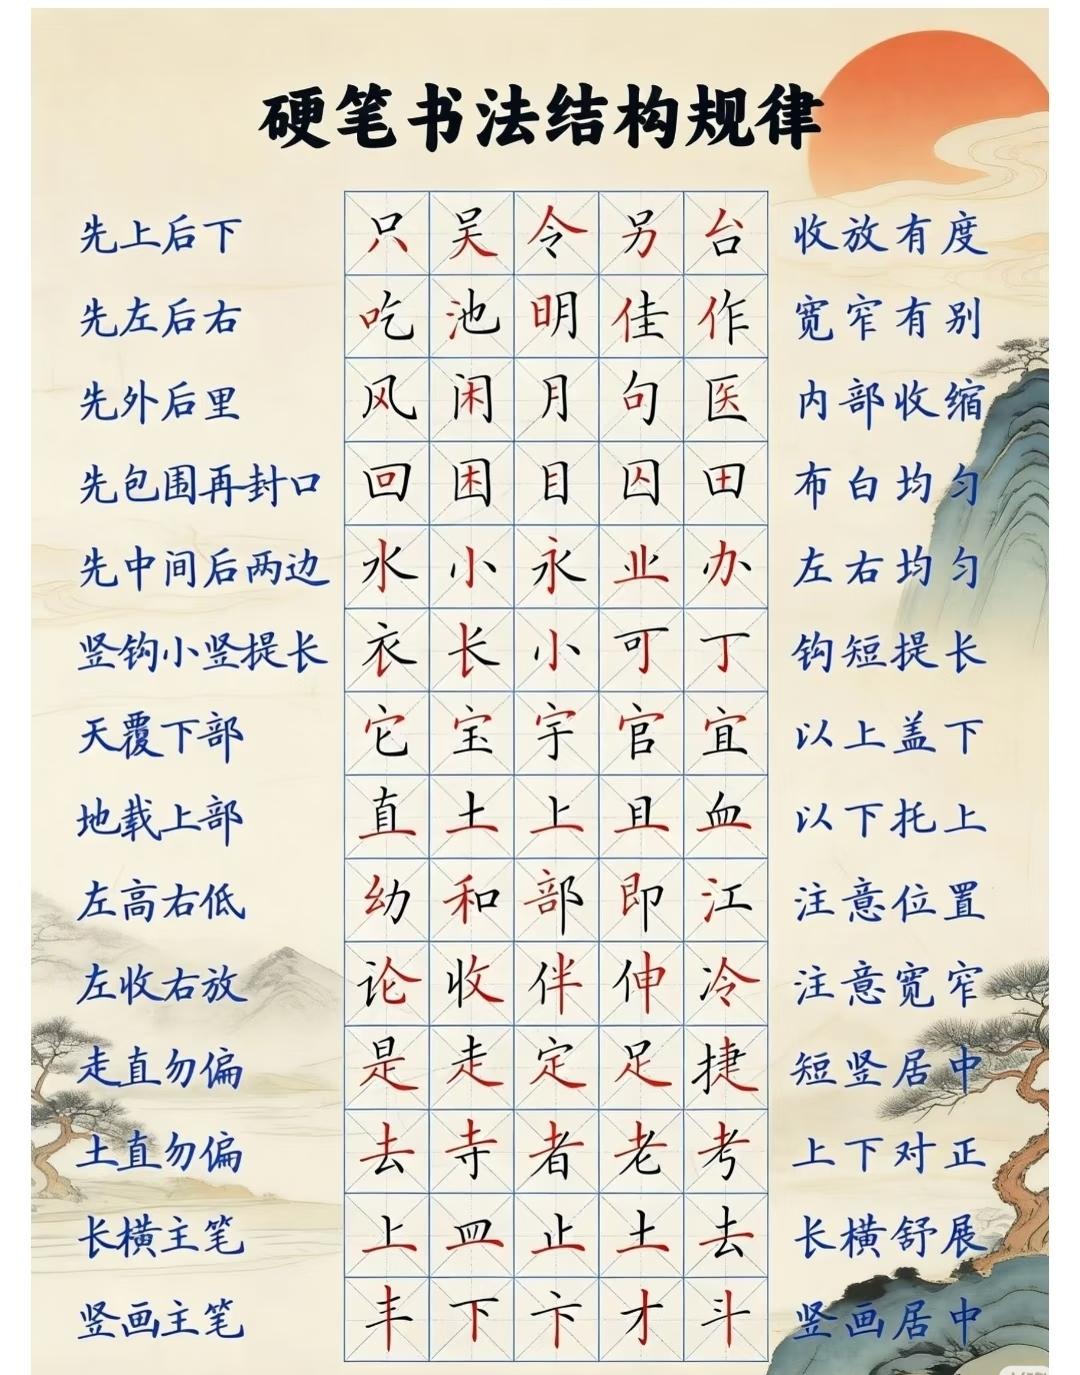 硬笔书法结构规律
先上后下 只 吴 令 另 台 收放有度
先左后右 吃 池 明 佳 作 宽窄有别
先外后里 风 闲 月 句 医 内部收缩
先包围再封口 回 困 目 囚 田 布白均匀
先中间后两边 水 小 永 业 办 左右均匀
竖钩小竖提长 衣 长 小 可 丁 钩短提长
天覆下部 它 宝 宇 官 宜 以上盖下
地载上部 直 土 上 且 血 以下托上
左高右低 幼 和 部 即 江 注意位置
左收右放 论 收 伴 伸 冷 注意宽窄
走直勿偏 是 走 定 足 捷 短竖居中
土直勿偏 去 寺 者 老 考 上下对正
长横主笔 上 皿 止 土 去 长横舒展
竖画主笔 丰 下 卞 才 斗 竖画居中